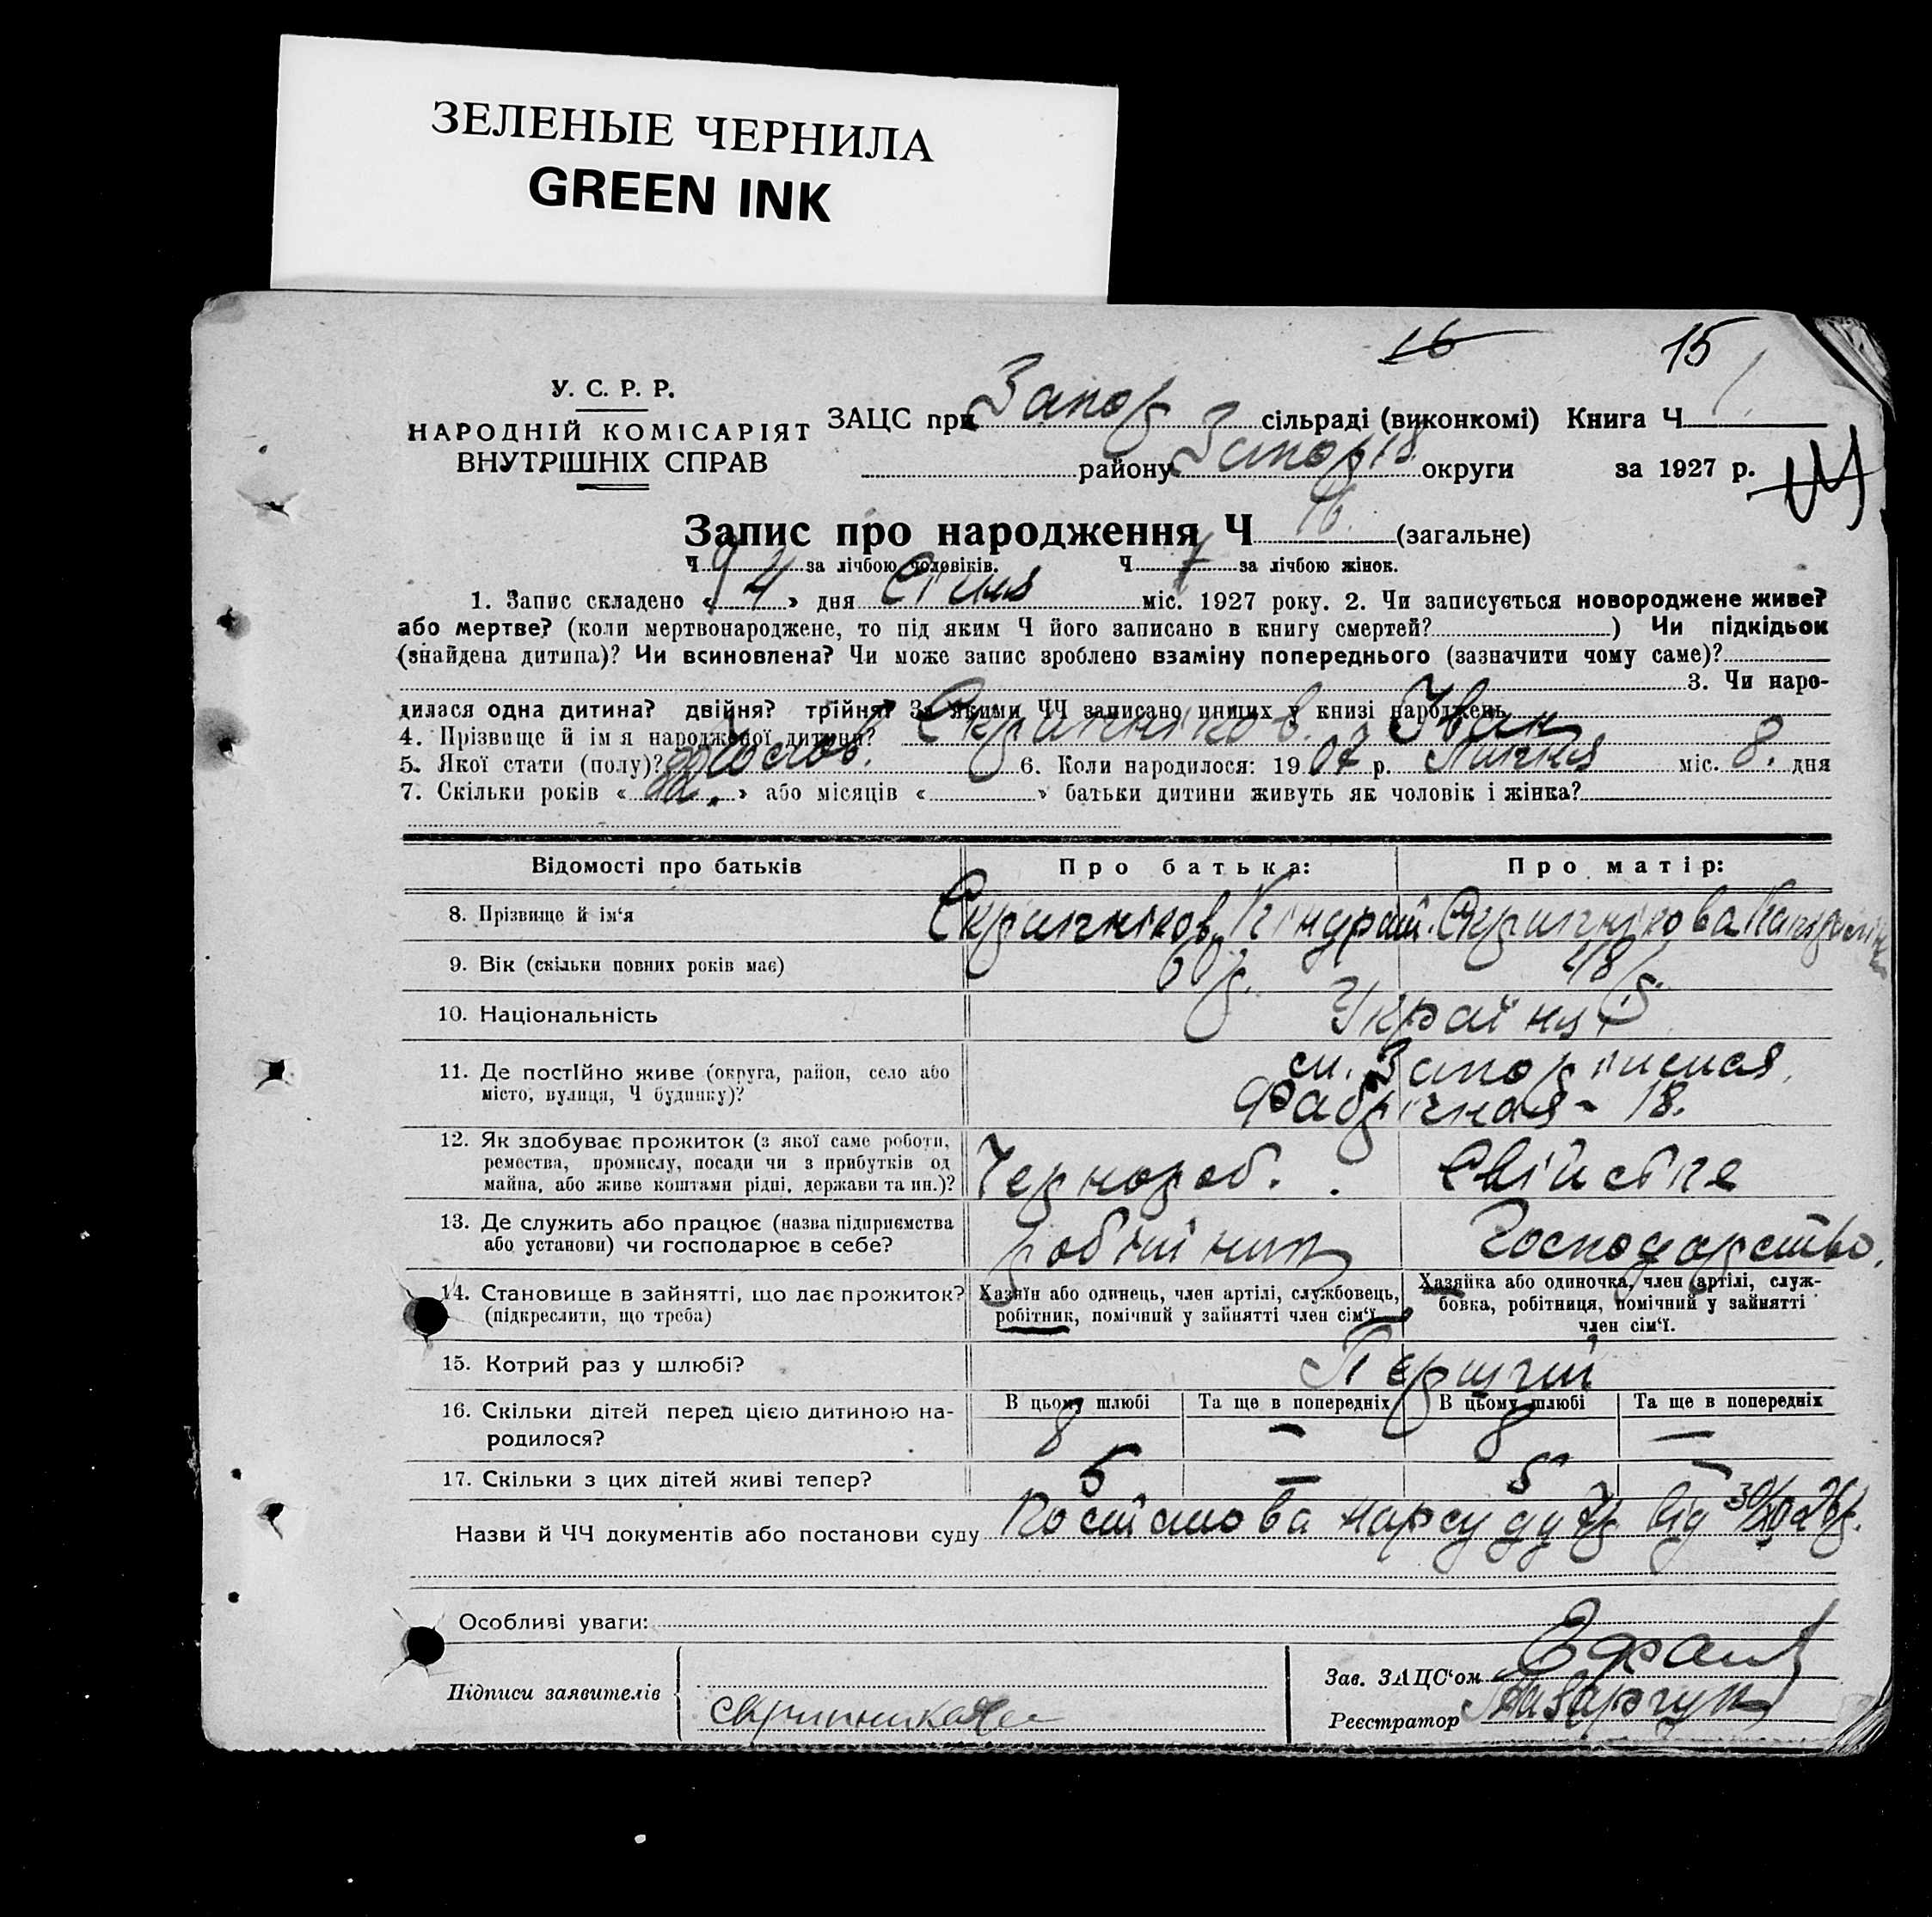 ЗЕЛЕНЫЕ ЧЕРНИЛА
GREEN INK
16 15
У. С. Р. Р.
НАРОДНІЙ КОМІСАРІЯТ
ВНУТРІШНІХ СПРАВ
ЗАЦС при Запор сільраді (виконкомі) Книга Ч 1.
району Запор округи за 1927 р.
Запис про народження Ч 16. (загальне)
Ч 9 за лічбою чоловіків. Ч 7 за лічбою жінок.
1. Запис складено « 4 » дня Січня міс. 1927 року. 2. Чи записується новороджене живе?
або мертве? (коли мертвонароджене, то під яким Ч його записано в книгу смертей? ) Чи підкідьок
(знайдена дитина)? Чи всиновлена? Чи може запис зроблено взаміну попереднього (зазначити чому саме)?
3. Чи наро-
дилася одна дитина? двійня? трійня? За якими ЧЧ записано инших у книзі народжень
4. Прізвище й ім я народженої дитини? Скрипніков. Іван
5. Якої стати (полу)? чолов. 6. Коли народилося: 1907 р. Липня міс. 8. дня
7. Скільки років « » або місяців « » батьки дитини живуть як чоловік і жінка?
Відомості про батьків Про батька: Про матір:
8. Прізвище й ім'я Скрипніков Кіндрат. Скрипнікова
9. Вік (скільки повних років має) 60 р. 48 р.
10. Національність Українці
11. Де постійно живе (округа, район, село або
місто, вулиця, Ч будинку)?
м. Запоріжжя,
Фабрична - 18.
12. Як здобуває прожиток (з якої саме роботи,
ремества, промислу, посади чи з прибутків од
майна, або живе коштами рідні, держави та ин.)?
Чернороб. Свійстве
13. Де служить або працює (назва підприємства
або установи) чи господарює в себе?
робітник Господарство.
14. Становище в зайнятті, що дає прожиток?
(підкреслити, що треба)
Хазяїн або одинець, член артілі, службовець,
робітник, помічний у зайнятті член сім'ї
Хазяйка або одиночка, член артілі, служ-
бовка, робітниця, помічний у зайнятті
член сім'ї.
15. Котрий раз у шлюбі? Перший
16. Скільки дітей перед цією дитиною на-
родилося?
В цьому шлюбі Та ще в попередніх В цьому шлюбі Та ще в попередніх
8 — 8 —
17. Скільки з цих дітей живі тепер? 5 — 5 —
Назви й ЧЧ документів або постанови суду Постанова нарсуду від
Особливі уваги:
Підписи заявителів
Зав. ЗАЦС'ом
Реєстратор